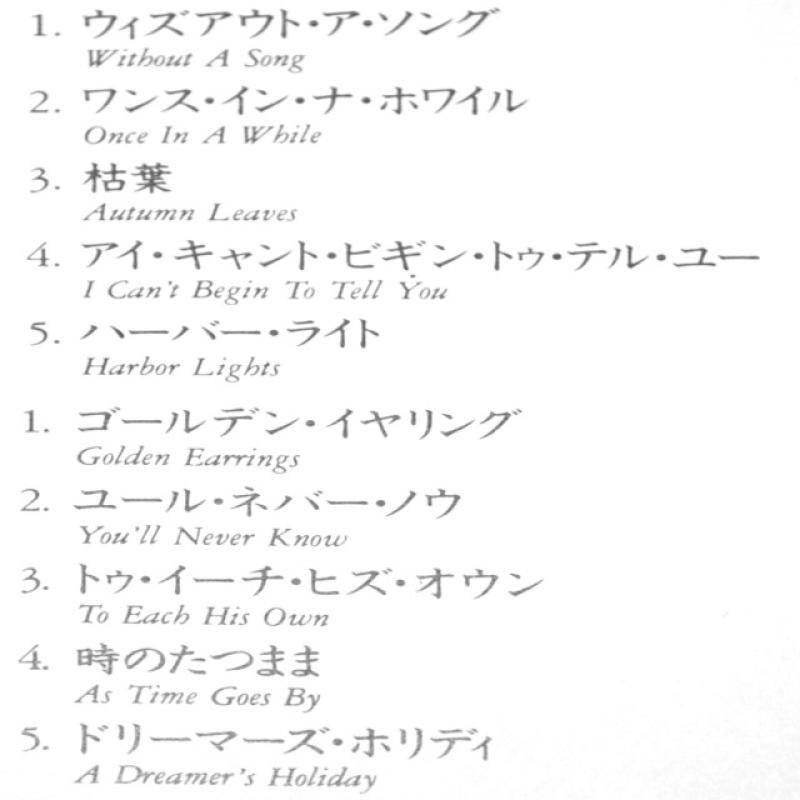 1. ウィズアウト・ア・ソング
Without A Song
2. ワンス・イン・ナ・ホワイル
Once In A While
3. 枯葉
Autumn Leaves
4. アイ・キャント・ビギン・トゥ・テル・ユー
I Can't Begin To Tell You
5. ハーバー・ライト
Harbor Lights
1. ゴールデン・イヤリング
Golden Earrings
2. ユール・ネバー・ノウ
You'll Never Know
3. トゥ・イーチ・ヒズ・オウン
To Each His Own
4. 時のたつまま
As Time Goes By
5. ドリーマーズ・ホリディ
A Dreamer's Holiday